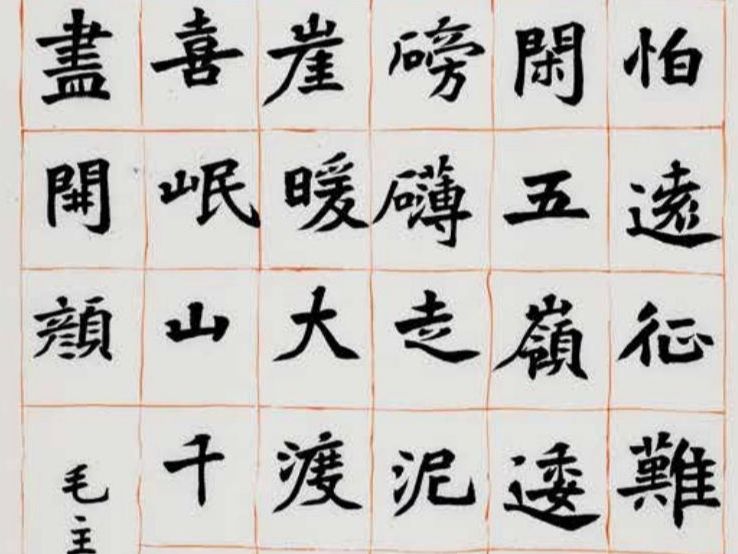 怕遠征難
閑五嶺逶
磅礡走泥
崖暖大渡
喜岷山千
盡開顔
毛主